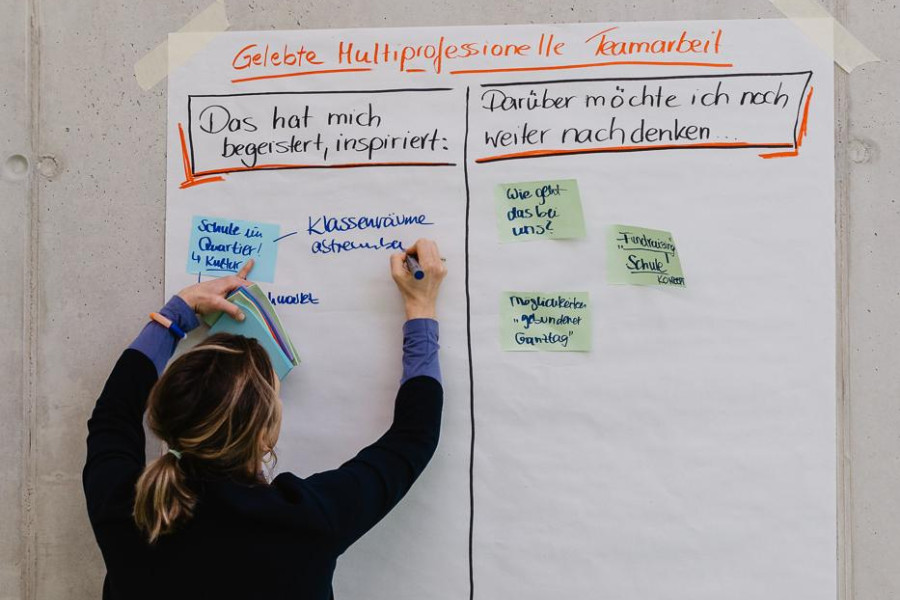 Gelebte Multiprofessionelle Teamarbeit
Das hat mich
begeistert, inspiriert:
Schule im
Quartier!
↳ Kultur
Klassenräume
Darüber möchte ich noch
weiter nachdenken...
Wie geht
das bei
uns?
"Fundraising
Schule"
Möglichkeiten
"gebundener
Ganztag"